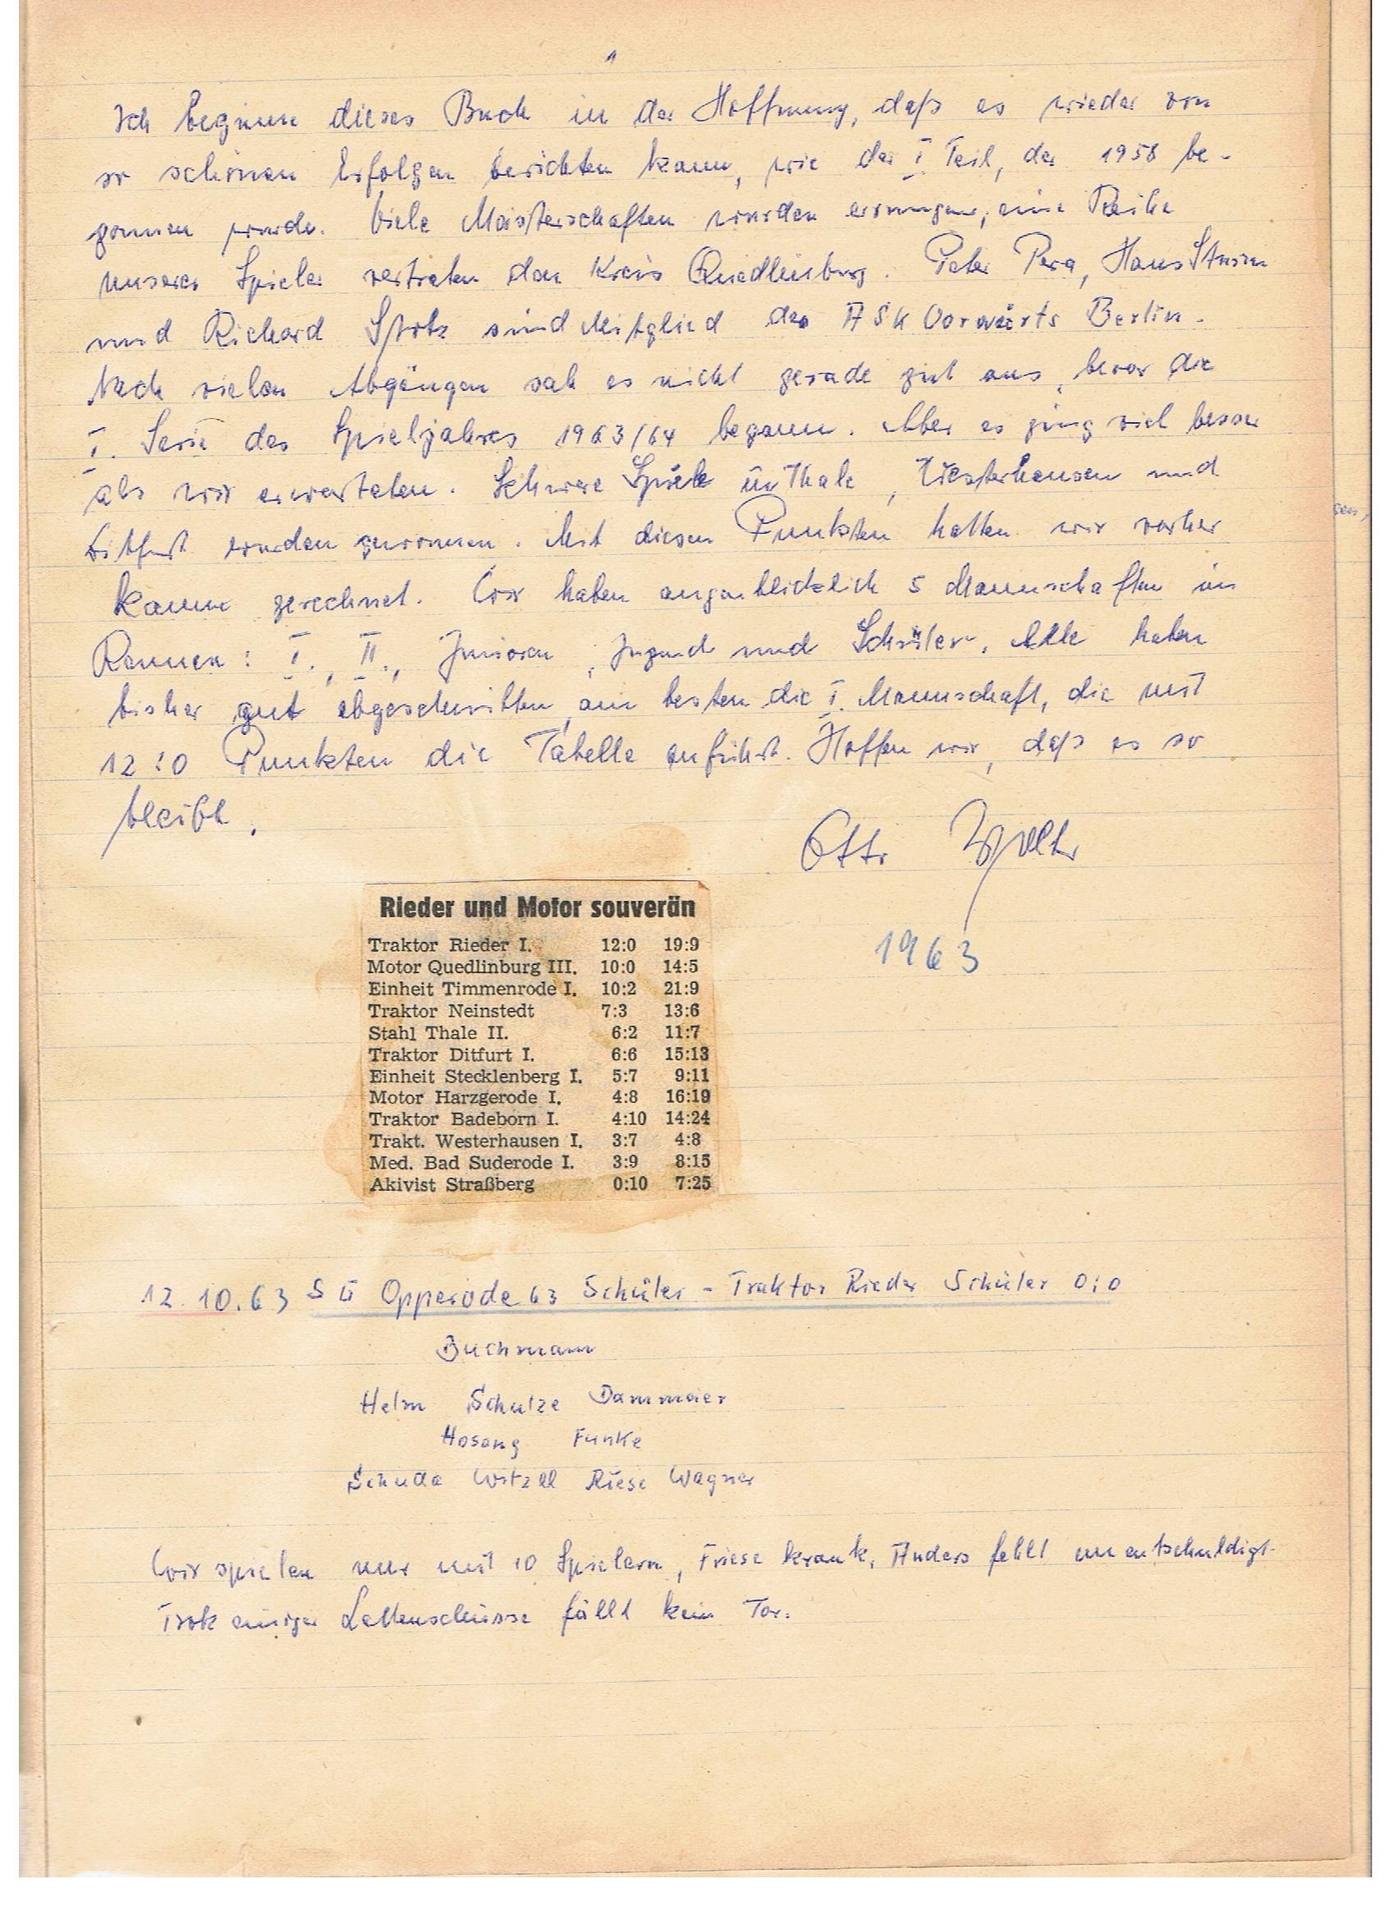 1
Ich beginne dieses Buch in der Hoffnung, daß es wieder von
so schönen Erfolgen berichten kann, wie der I. Teil, der 1958 be-
gonnen wurde. Viele Meisterschaften wurden errungen, eine Reihe
unserer Spieler vertraten den Kreis Quedlinburg. Peter Pera, Hans Sturm
und Richard sind Mitglied des ASK Vorwärts Berlin.
Nach vielen Abgängen sah es nicht gerade gut aus, bevor die
I. Serie des Spieljahres 1963/64 begann. Aber es ging viel besser
als wir erwarteten. Schwere Spiele in Thale, Westerhausen und
Ditfurt wurden gewonnen. Mit diesen Punkten hatten wir vorher
kaum gerechnet. Wir haben augenblicklich 5 Mannschaften im
Rennen: I., II., Junioren, Jugend und Schüler. Alle haben
bisher gut abgeschnitten, am besten die I. Mannschaft, die mit
12:0 Punkten die Tabelle anführt. Hoffen wir, daß es so
bleibt.
Otto
1963
Rieder und Motor souverän
Traktor Rieder I. 12:0 19:9
Motor Quedlinburg III. 10:0 14:5
Einheit Timmenrode I. 10:2 21:9
Traktor Neinstedt 7:3 13:6
Stahl Thale II. 6:2 11:7
Traktor Ditfurt I. 6:6 15:13
Einheit Stecklenberg I. 5:7 9:11
Motor Harzgerode I. 4:8 16:19
Traktor Badeborn I. 4:10 14:24
Trakt. Westerhausen I. 3:7 4:8
Med. Bad Suderode I. 3:9 8:15
Akivist Straßberg 0:10 7:25
12.10.63 SG Opperode 63 Schüler - Traktor Rieder Schüler 0:0
Buchmann
Helm Schulze Dammeier
Hosang Funke
Schuda Witzell Riese Wagner
Wir spielen nur mit 10 Spielern, Friese krank, Anders fehlt unentschuldigt.
Trotz einiger Lattenschüsse fällt kein Tor.